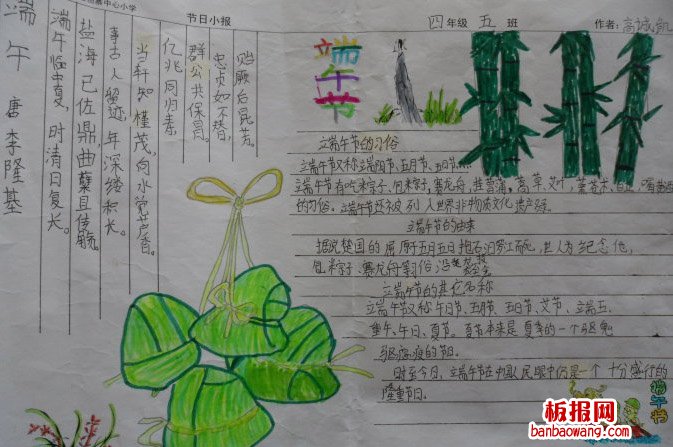 中心小学
节日小报
四年级 五 班
作者:
端午 唐 李隆基
端午临中夏，时清日复长。
盐海已佐鼎曲糵且传觞。
事古人留迹，年深缕积长。
当轩知槿茂，向水觉芦香。
亿兆同归寿
群公共保昌。
忠贞如不替，
贻厥后昆芳。
端午节
端午节的习俗
端午节又称端阳节、五月节、五日节
端午节有吃粽子，赛龙舟，挂菖蒲、蒿草、艾叶，薰苍术、白芷，喝雄黄酒
的习俗。端午节还被列入世界非物质文化遗产
端午节的由来
据说楚国的屈原于五月五日投汨罗江而死，世人为纪念他，
包粽子、赛龙舟等习俗
端午节的其它名称
端午节又称午日节、五月节、五日节、艾节、端五、
重午、午日、夏节。夏节本来是夏季的一个驱
瘟疫的节日。
时至今日，端午节在中国人民眼中仍是一个十分盛行的
隆重节日。
端午节
板报网
banbaowang.com